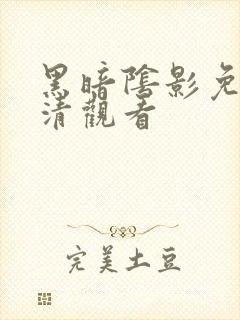 黑暗陰影免
清觀看
完美土豆